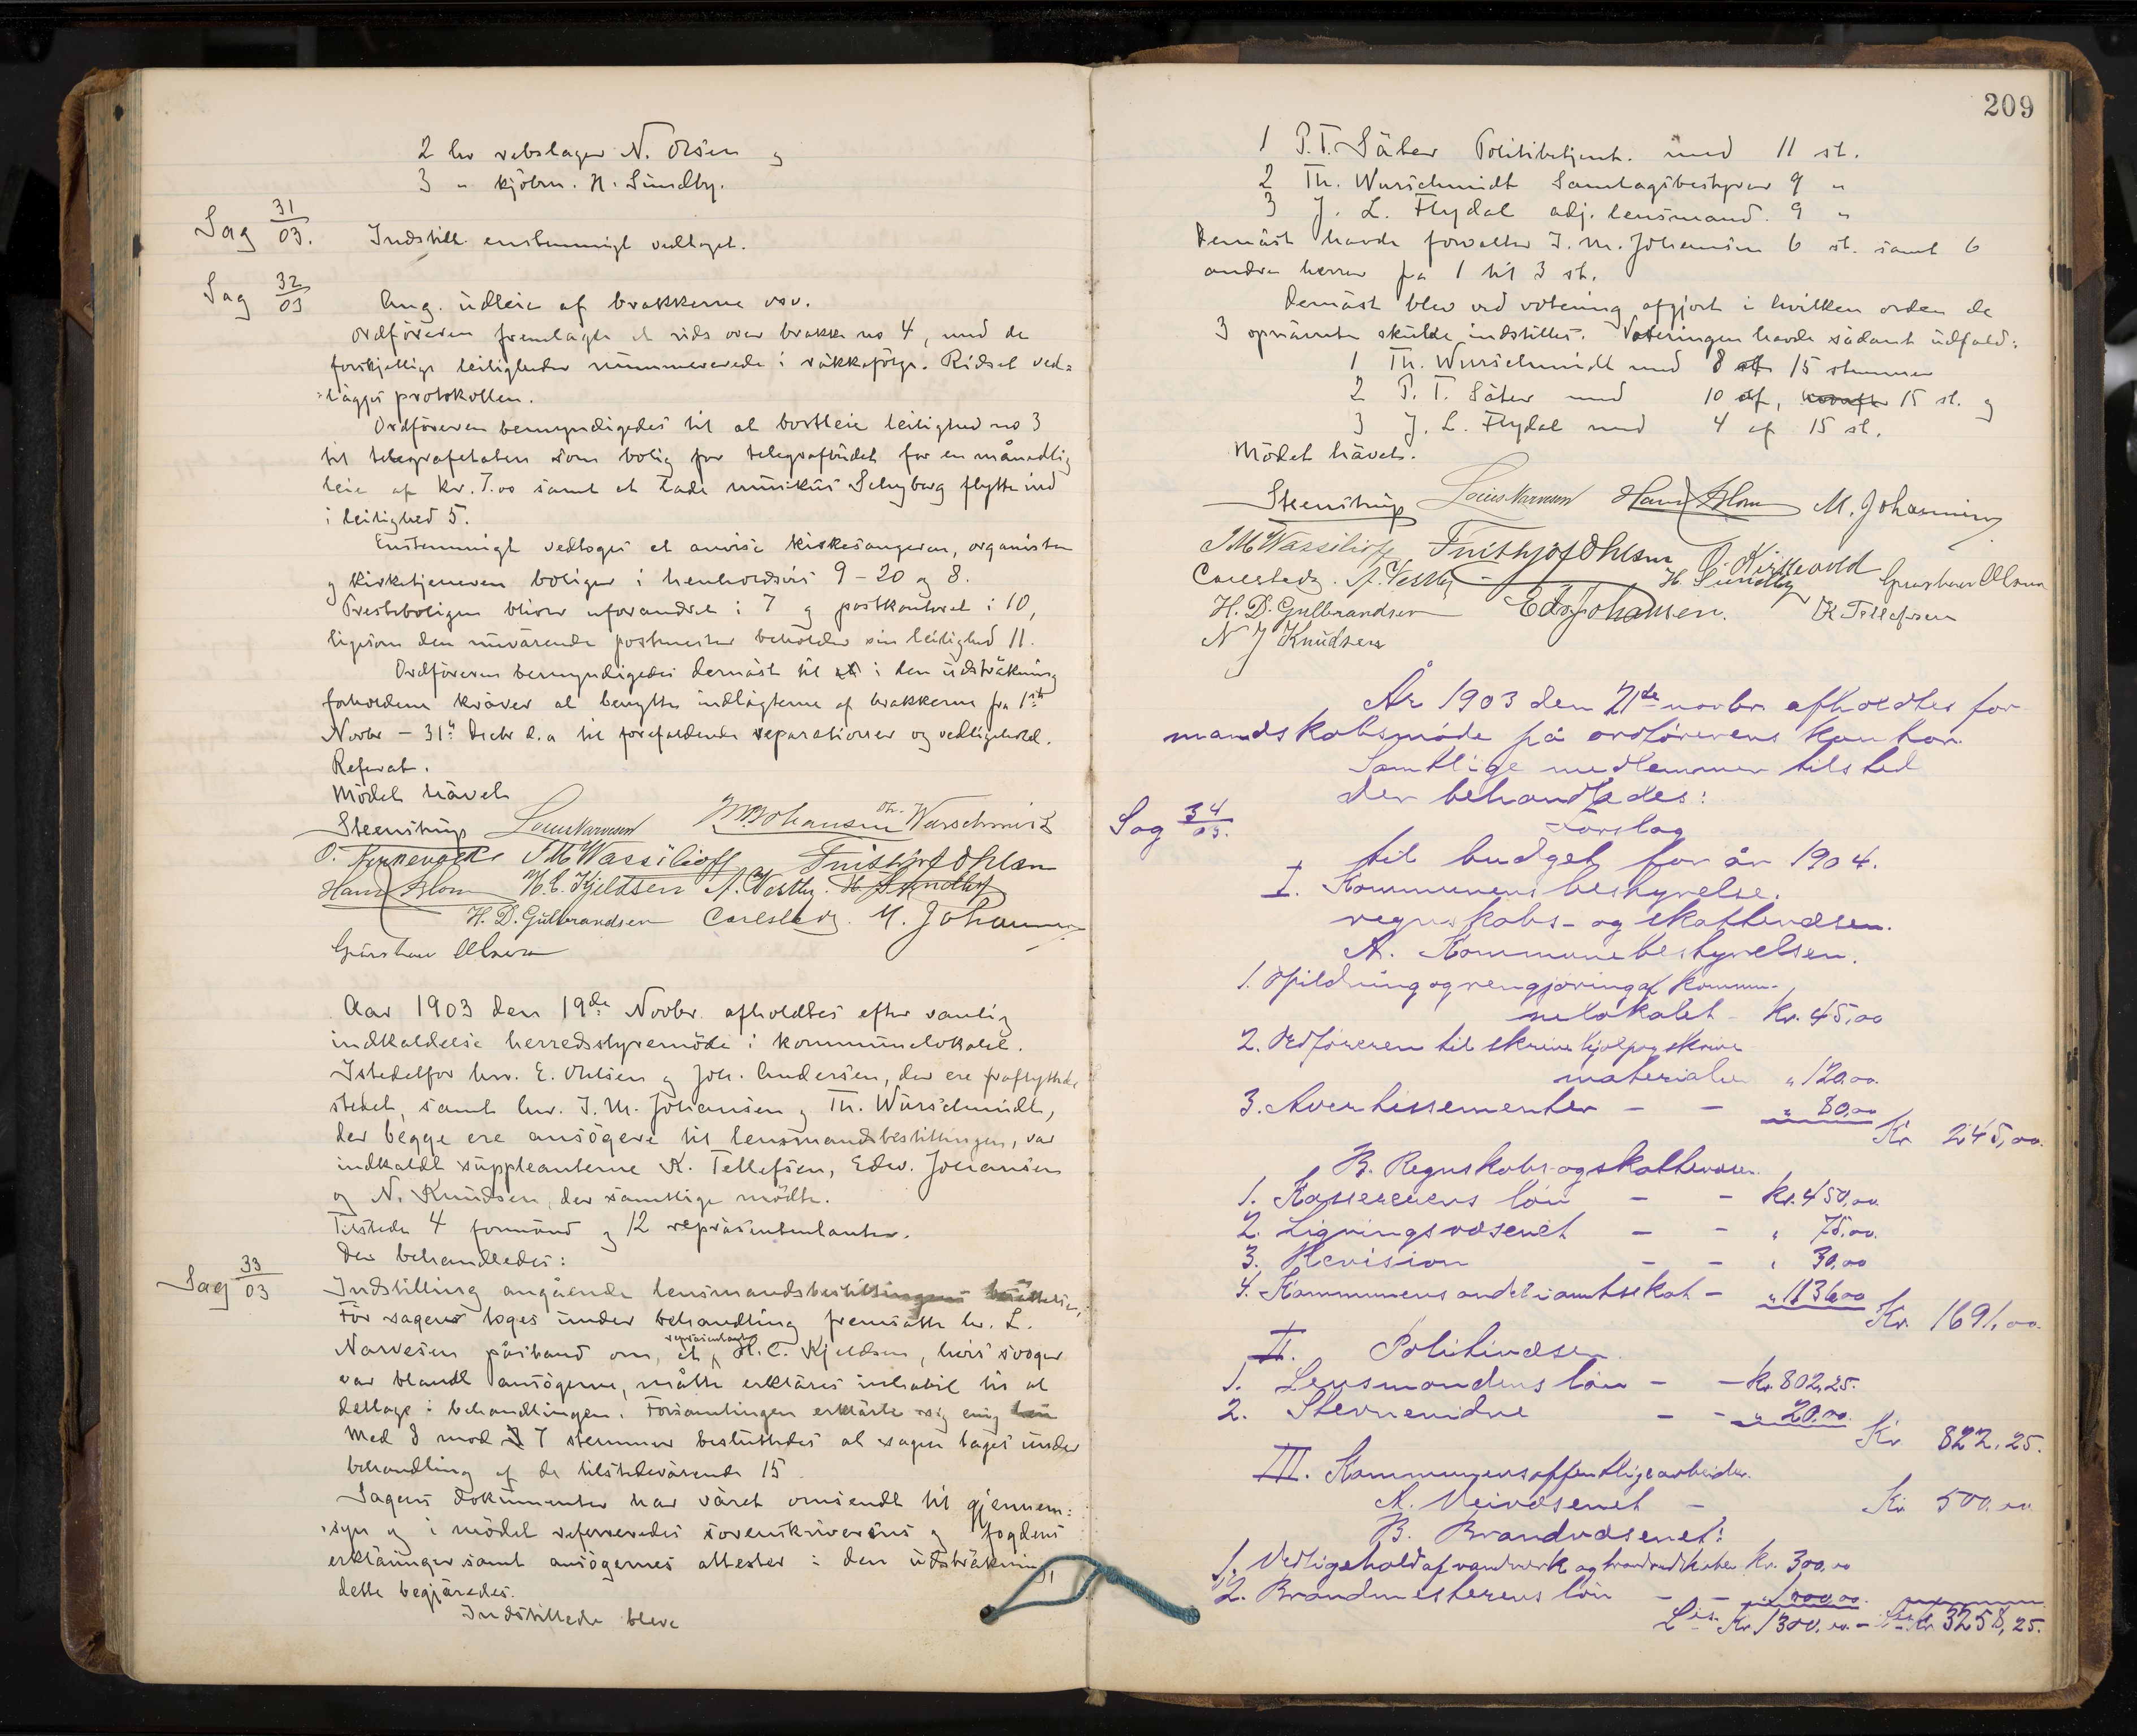 2 hr rebslager N. Olsen og
3 " kjöbm. H. Sundby.
Sag 31/03. Indstill. enstemmigt vedtaget.
Sag 32/03 Ang. udleie af brakkerne osv.
Ordföreren fremlagte et rids over brakke no 4, med de
forskjellige leiligheder nummererede i rækkefölge. Ridset ved=
=lägges protokollen.
Ordföreren bemyndigedes til at bortleie leilighed no 3
til telegrafetaten som bolig for telegrafbudet for en månedlig
leie af kr. 7.00 samt at lade musikus Schyberg flytte ind
i leilighed 5.
Enstemmigt vedtoges at anvise kirkesangeren, organisten
og kirketjeneren boliger i henholdsvis 9 - 20 og 8.
Presteboligen bliver uforandret i 7 og postkontoret i 10,
ligesom den nuværende postmester beholder sin leilighed 11.
Ordföreren bemyndigedes dernäst til i den udsträkning
forholdene kräver at benytte indtägterne af brakkerne fra 1ste
Novbr - 31te Decbr d.a til forefaldende reparationer og vedligehold.
Referat.
Mödet hävet
Steenstrup Louis Narvesen J M Johansen Th. Wurschmidt
O. Kirkevold J M Wassilioff Frithjof Ohlsen
Hans Blom H. C. Kjeldsen A. Vestby. H. Sundby
H. D. Gulbrandsen Carlstedt. M. Johannesen
Gunstav Olsen
Aar 1903 den 19de Novbr. afholdtes efter vanlig
indkaldelse herredsstyremöde i kommunelokalet.
Istedetfor hr. E. Ohlsen og Joh. Andersen, der ere fraflyttede
stedet, samt hr. J. M. Johansen og Th. Wurschmidt,
der begge ere ansögere til lensmandsbestillingen, var
indkaldt suppleanterne K. Tellefsen, Edv. Johansen
og N. Knudsen, der samtlige mödte.
Tilstede 4 formänd og 12 repräsentantanter.
Der behandledes:
Sag 33/03 Indstilling angående lensmandsbestillingens besättelse,
För sagen toges under behandling fremsatte hr. L.
Narvesen påstand om, at repräsentant H. C. Kjeldsen, hvis svoger
var blandt ansögerne, måtte erkläres inhabil til at
deltage i behandlingen. Forsamlingen erklärte sig enig
Med 8 mod 7 stemmer besluttedes at sagen toges under
behandling af de tilstedevärende 15
Sagens dokumenter har väret omsendt til gjennem=
=syn og i mödet refereredes sorenskriverens og fogdens
erkläringer samt ansögernes attester i den udsträkning
dette begjäredes.
Indstillede bleve
209
1 P. T. Säter Politibetjent. med 11 st.
2 Th. Wurschmidt Samlagsbestyrer 9 "
3 J. L. Flydal adj. lensmand. 9 "
Dernäst havde forvalter J. M. Johansen 6 st. samt 6
andre herrer fra 1 til 3 st.
Dernäst blev ved votering afgjort i hvilken orden de
3 opnävnte skulde indstilles. Voteringen havde sådant udfald:
1 Th. Wurschmidt med 8 af 15 stemmer
2 P. T. Säter med 10 af, 15 st. og
3 J. L. Flydal med 4 af 15 st.
Mödet hävet.
Steenstrup Louis Narvesen Hans Blom M. Johannesen
J M Wassilioff Frithjof Ohlsen O. Kirkevold
Carlstedt. A. Vestby - H. Sundby Gunstav Olsen
H. D. Gulbrandsen Edv Johansen. K Tellefsen
N J Knudsen
År 1903 den 21de novbr afholdtes for
mandskabsmöde på ordförerens kontor.
Samtlige medlemmer tilsted
der behandledes:
Sag 34/03. Forslag
til budget for år 1904.
I. Kommunens bestyrelse.
regnskabs- og skattevæsen.
A. Kommunebestyrelsen.
1. Opildning og rengjöring af kommu-
nelokalet - Kr. 45,00
2. Ordföreren til skrivehjælp og skrive
materialer " 120.00.
3. Avertissementer - - " 80,00
Kr 245,00.
B. Regnskabs- og skattevæsen.
1. Kassererens lön - - kr. 450,00.
2. Ligningsvæsenet - - " 75,00.
3. Revision - - " 30,00
4. Kommunens andel i amtsskat - " 1136,00
Kr. 1691,00.
II. Politivæsen.
1. Lensmandens lön - - kr. 802,25.
2. Stevnevidne - - " 20.00.
Kr 822,25.
III. Kommunens offentlige arbeider.
A. Veivæsenet - Kr 500.00
B. Brandvæsenet:
1. Vedligehold af vandverk og brandredskaber kr. 300,00
2. Brandmesterens lön - - 1000,00.
Lis. Kr 1300.00. - Lis Kr 3258,25.